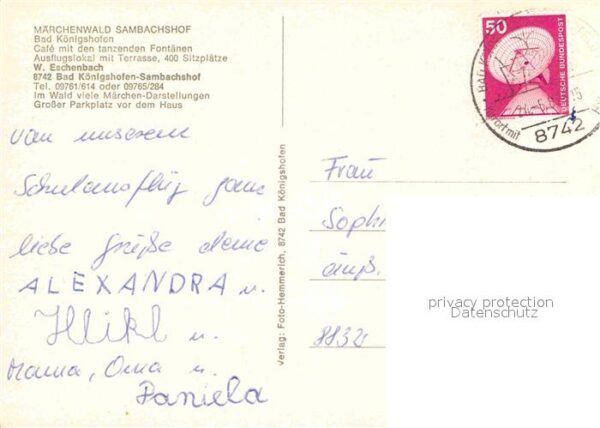 MÄRCHENWALD SAMBACHSHOF
Bad Königshofen
Café mit den tanzenden Fontänen
Ausflugslokal mit Terrasse, 400 Sitzplätze
W. Eschenbach
8742 Bad Königshofen-Sambachshof
Tel. 09761/614 oder 09765/284
Im Wald viele Märchen-Darstellungen
Großer Parkplatz vor dem Haus
von unserem
Schulausflug ganz
liebe Grüße deine
ALEXANDRA u.
u.
Mama, Oma u.
Daniela
Verlag: Foto-Hemmerich, 8742 Bad Königshofen
50
DEUTSCHE BUNDESPOST
8742
Frau
Soph
äuß.
8832
privacy protection
Datenschutz